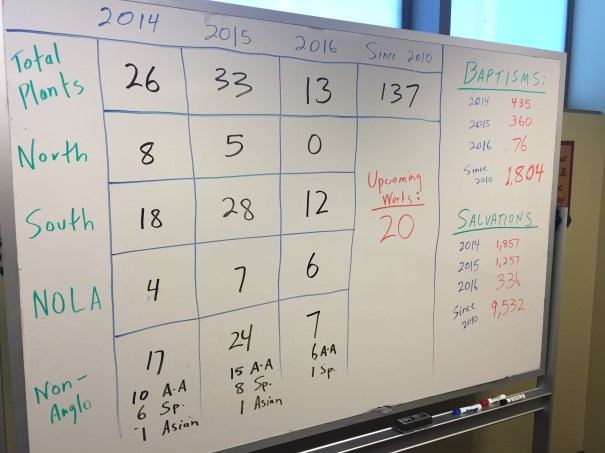 2014 2015 2016 Since 2010
Total Plants 26 33 13 137
North 8 5 0
South 18 28 12
NOLA 4 7 6
Non-Anglo 17 24 7
10 A-A 15 A-A 6 A-A
6 Sp. 8 Sp. 1 Sp.
1 Asian 1 Asian
Upcoming
Works:
20
BAPTISMS:
2014 435
2015 360
2016 76
Since 2010 1,804
SALVATIONS
2014 1,857
2015 1,257
2016
Since 2010 9,532